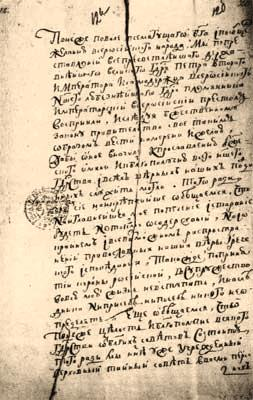 Понеже по воле всемогущего бга и по общему
желанию россиского народа мы по пре
ставлении всепресветлеишаго держав
неишаго великого гдря Петра второго
императора и самодержца всеросиского
нашего любезнеишаго гдря племянника
императорскии всеросискии престол
восприяли и следуя бжественному
закону правителство свое таким
образом вести намерена и желаю
дабы оное вначале к прославлению бже
ского имяни и к благополучию всего нашего
гсдрства и всех верных наших подда
ных служить могло. Того ради
чрез сие наикрепчаише обещаемся, что
наиглавнеишее мое попечение и старание
будет не токмо о содержании, но и
краинем и всевозможном распростра
нении православные нашея веры грече
ского исповедания, такожде по приня
тии короны росиской, в супружество
во всю мою жизнь не вступать, и насле
дника ни при себе, ни по себе никого не о
пределять. Еще обещаемся, что
понеже целость и благополучие всякого
гсдрства от благих советов состоит,
того ради мы ныне уже учрежденный
верховный тайный совет в восми персо